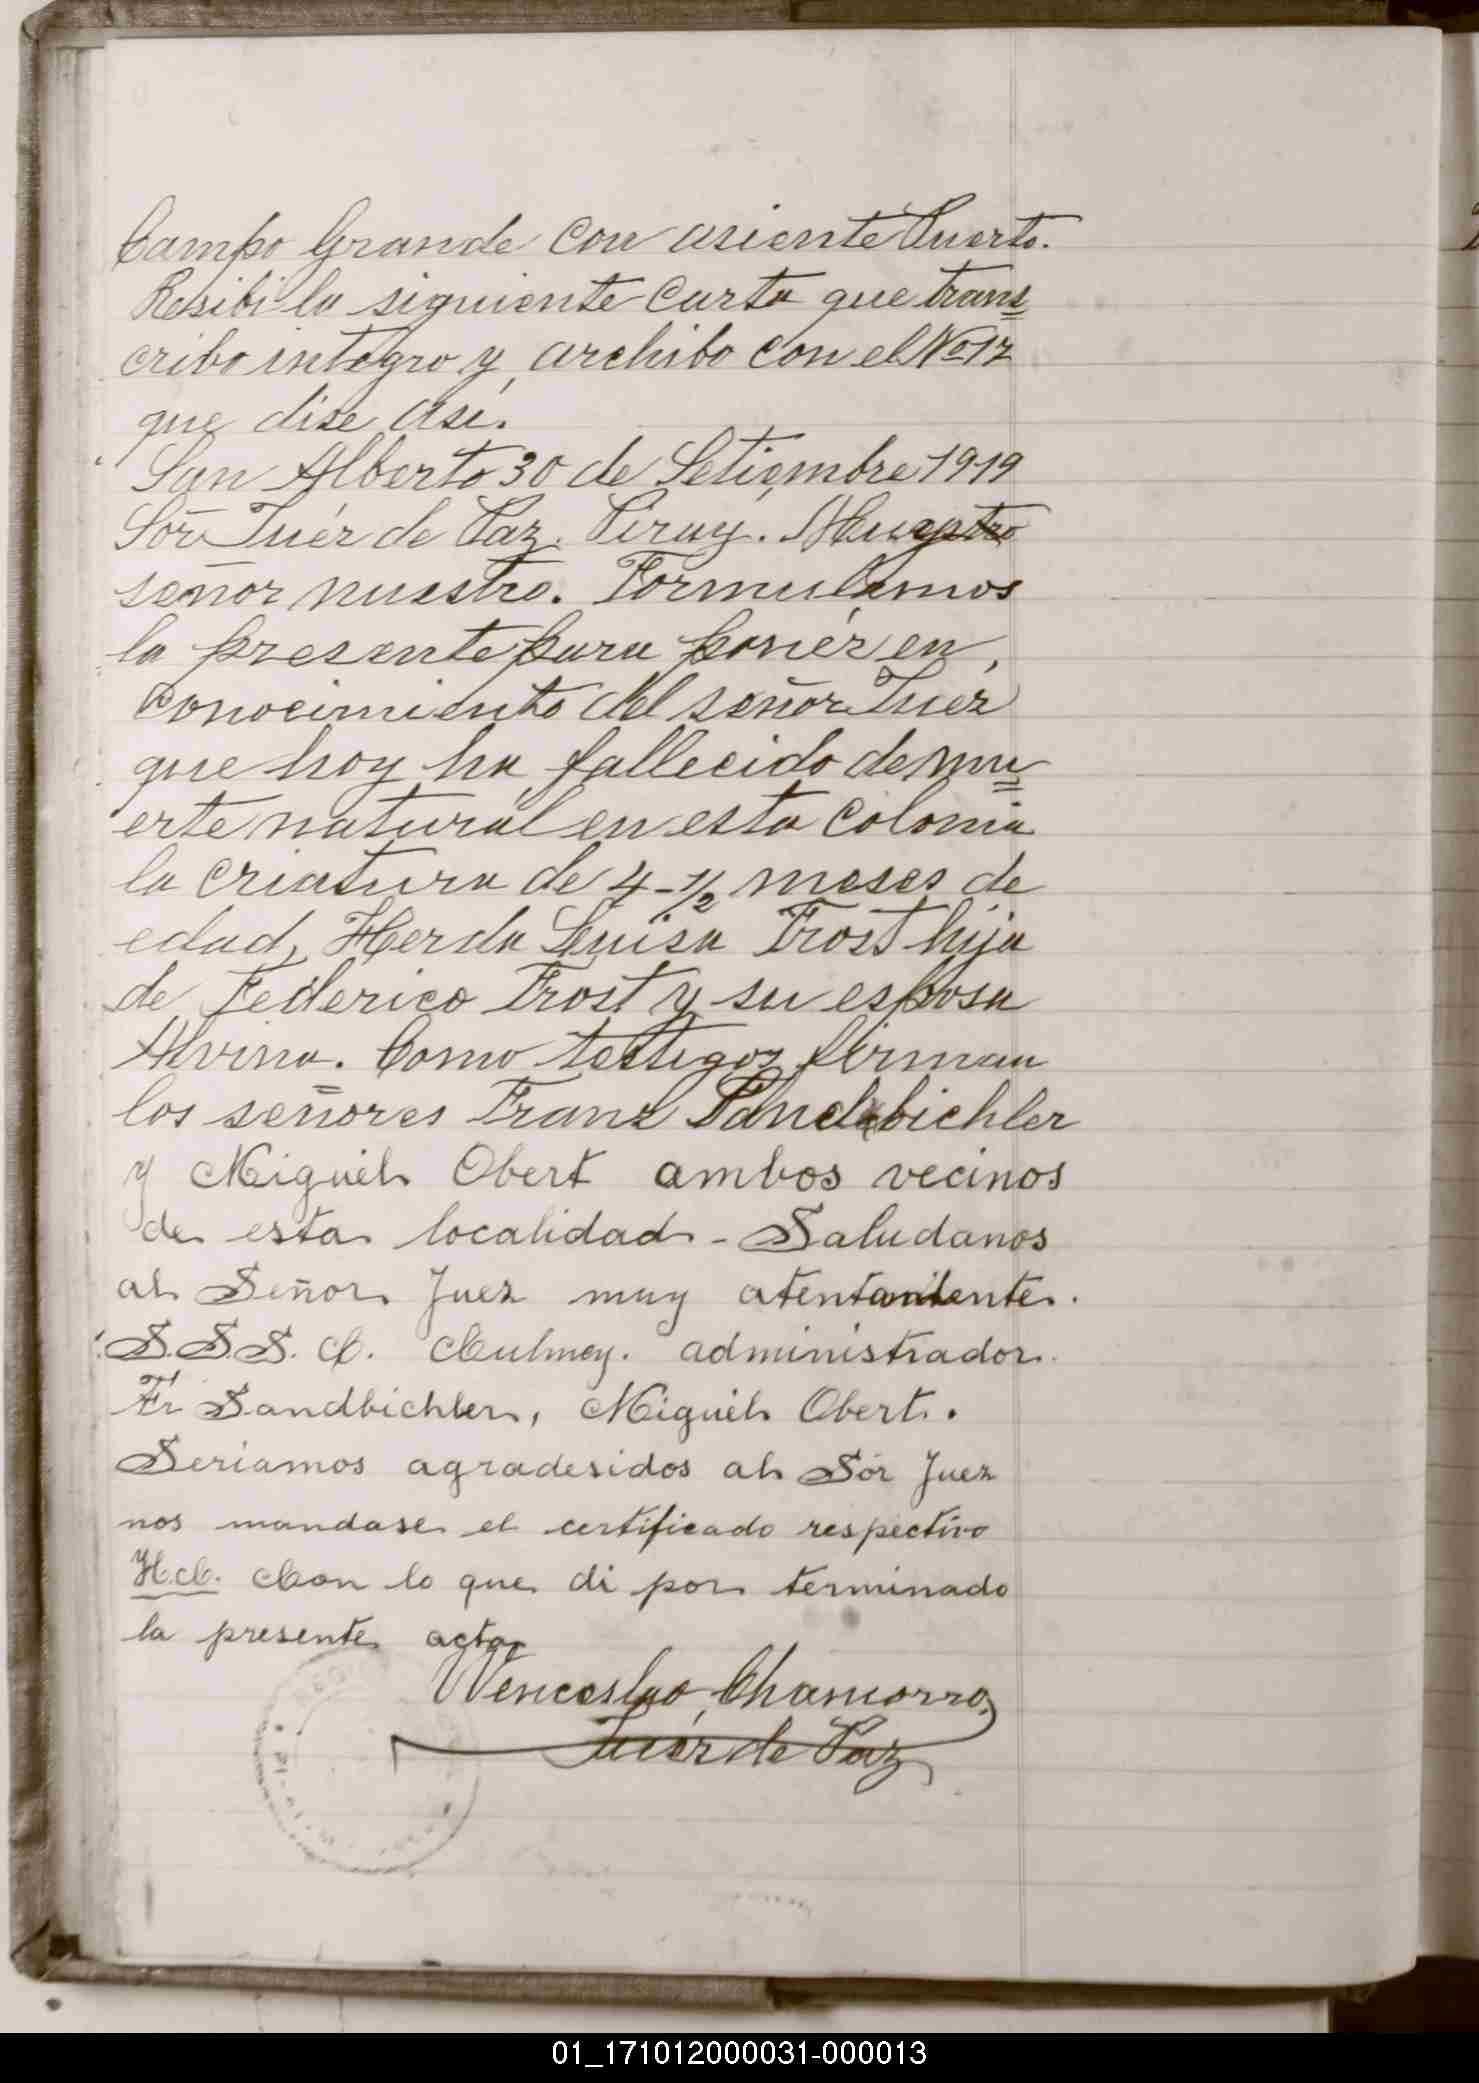 Campo Grande con asiente Puerto.
Resibi la siguiente carta que trans
cribo integro y archibo con el Nº 17
que dise así.
San Alberto 30 de Setiembre 1919
Sor Juéz de Paz. Piray.
señor nuestro. Formulamos
la presente para ponér en
conocimiento del señor Juez
que hoy ha fallecido de mu
erte natural en esta colonia
la criatura de 4-1/2 meses de
edad, Herda Luisa Frost hija
de Federico Frost y su esposa
Alvina. Como testigos firman
los señores Franz Sandbichler
y Miguél Obert ambos vecinos
de esta localidad - Saludanos
al Señor Juez muy atentamente.
S.S.S. C. Culmey. administrador.
Fr Sandbichler, Miguél Obert.
Seriamos agradesidos al Sór Juez
nos mandase el certificado respectivo
H.C. Con lo que di por terminado
la presente acta
Wenceslao Chamorro
Juéz de Paz
01_171012000031-000013